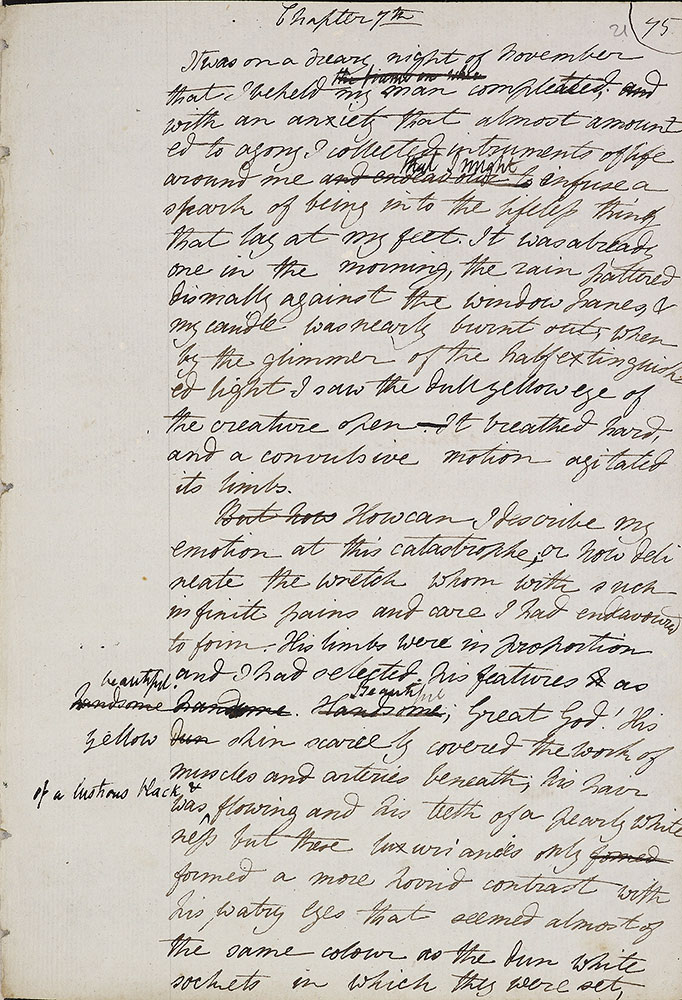 Chapter 7th
21 75
It was on a dreary night of November
that I beheld the frame on whic my man compleated, and
with an anxiety that almost amount
ed to agony I collected instruments of life
around me and endeavour to that I might infuse a
spark of being into the lifeless thing
that lay at my feet. It was already
one in the morning, the rain pattered
dismally against the window panes, &
my candle was nearly burnt out, when
by the glimmer of the half extinguish
ed light I saw the dull yellow eye of
the creature open - It breathed hard,
and a convulsive motion agitated
its limbs.
But how How can I describe my
emotion at this catastrophe, or how deli
neate the wretch whom with such
infinite pains and care I had endavoured
to form. His limbs were in proportion
and I had selected his features as
beautiful.
handsome handsome. Handsome Beautiful; Great God! His
yellow dun skin scarcely covered the work of
muscles and arteries beneath; his hair
of a lustrous black, &
was flowing and his teeth of a pearly white
ness but these luxuriancies only formed
formed a more horrid contrast with
his watry eyes that seemed almost of
the same colour as the dun white
sockets in which they were set,